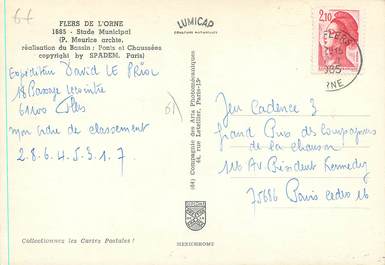 61
FLERS DE L'ORNE
1685 - Stade Municipal
(P. Meurice archte.
réalisation du Bassin : Ponts et Chaussées
copyright by SPADEM, Paris)
LUMICAP
2,10
FLERS
ORNE
Expéditeur David LE PRIOL
18 Passage Lecointre
61100 Flers
mon ordre de classement
2.8.6.4.5.3.1.7
61
(64) Compagnie des Arts Photomécaniques
44, rue Letellier, Paris-15e
Jeu Cadence 3
Grand Prix des compagnons
de la chanson
116 Av. Président Kennedy
75686 Paris cedex 16
Collectionnez les Cartes Postales !
MEXICHROME